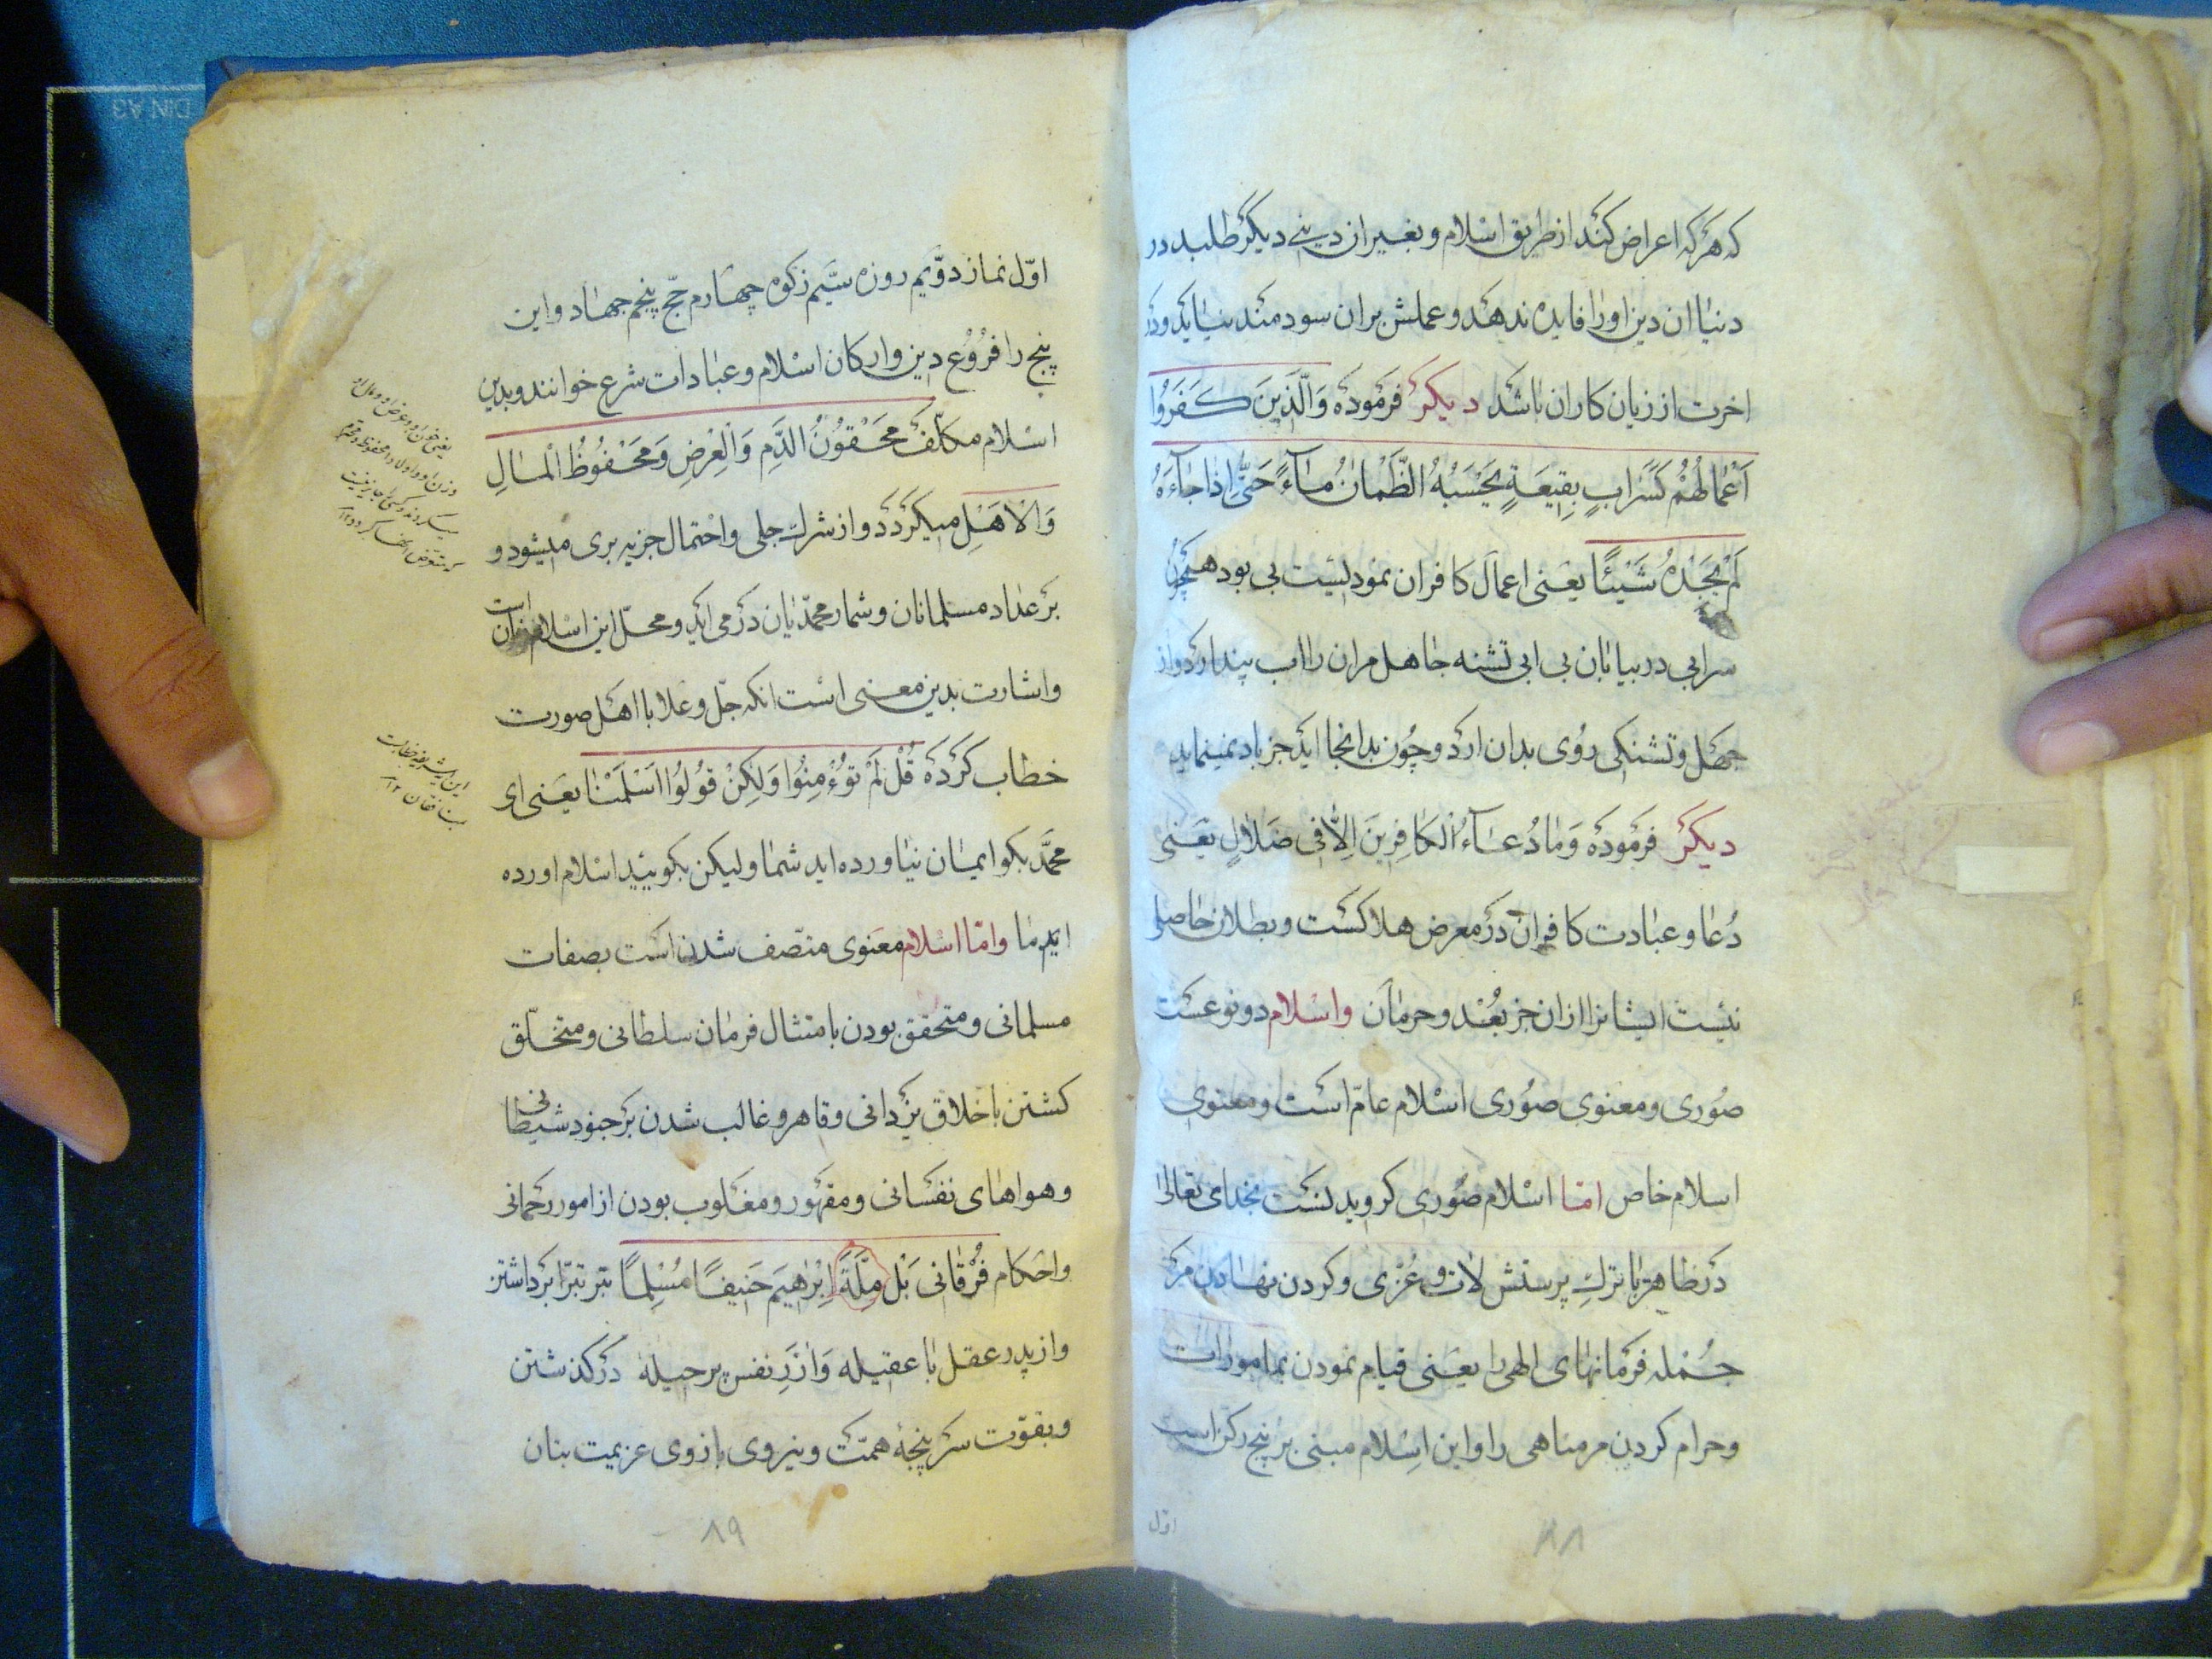 که هرکه اعراض کند از طریق اسلام و بغیر ان دینے دیگر طلبد در
دنیا ان دین اورا فایده ندهد و عملش بران سودمند نیاید و در
اخرت از زیان کاران باشد دیکر فرموده وَالَّذِینَ کَفَرُوا
اَعْمَالُهُمْ کَسَرَابٍ بِقِیعَةٍ یَحْسَبُهُ الظَّمْانُ مَآءً حَتّٰی اِذَا جَآءَهُ
لَمْ یَجِدْهُ شَیْئًا یعنی اعمال کافران نمودیست بی بود همچون
سرابی در بیابان بی ابی تشنه جاهل مران را اب پندارد و از
جهل و تشنکی روی بدان ارد و چون بدانجا اید جز باد نمینماید
دیکر فرموده وَمَا دُعَآءُ الْکَافِرِینَ اِلَّا فِی ضَلَالٍ یعنی
دعا و عبادت کافران در معرض هلاکست و بطلان حاصل
نیست ایشانرا ازان جز بعد و حرمان واسلام دو نوعست
صوری و معنوی صوری اسلام عامّ است و معنوی
اسلام خاص امّا اسلام صوری کرویدنست بخدای تعالی
در ظاهر با ترك پرستش لات و عزی و کردن نهادن مر
جمله فرمانهای الهی را یعنی قیام نمودن بمامورات
و حرام کردن مر مناهی را و این اسلام مبنی بر پنج رکن است
اوّل
٨٨
اوّل نماز دوّیم روزه سیّم زکوه چهارم حجّ پنجم جهاد و این
پنج را فروع دین و ارکان اسلام و عبادات شرع خوانند و بدین
اسلام مکلّف مَحْقُونُ الدَّمِ وَالْعِرْضِ وَمَحْفُوظُ الْمَالِ
وَالْاَهْلِ میکردد و از شرك جلی و احتمال جزیه بری میشود و
بر عداد مسلمانان و شمار محمدّیان در می اید و محلّ این اسلام زبان است
و اشارت بدین معنی است انکه جلّ وعلا با اهل صورت
خطاب کرده قُلْ لَمْ تُوءْمِنُوا وَلٰکِنْ قُولُوا اَسْلَمْنَا یعنی ای
محمَّد بکو ایمان نیاورده اید شما ولیکن بکویید اسلام اورده
ایم ما وامّا اسلام معنوی متّصف شدن است بصفات
مسلمانی و متحقق بودن بامتثال فرمان سلطانی و متخلّق
کشتن باخلاق یزدانی و قاهر و غالب شدن بر جنود شیطانی
و هواهای نفسانی و مقهور و مغلوب بودن از امور رحمانی
و احکام فُرْقانی بَلْ مِلَّةَ اِبْرٰهِیمَ حَنِیفًا مُسْلِمًا تبر تبرّا برداشتن
و از پدر عقل با عقیله وَازَرِ نفس پر حیله درکذشتن
و بقوّت سرپنجهٔ همّت و نیروی بازوی عزیمت بنان
٨٩